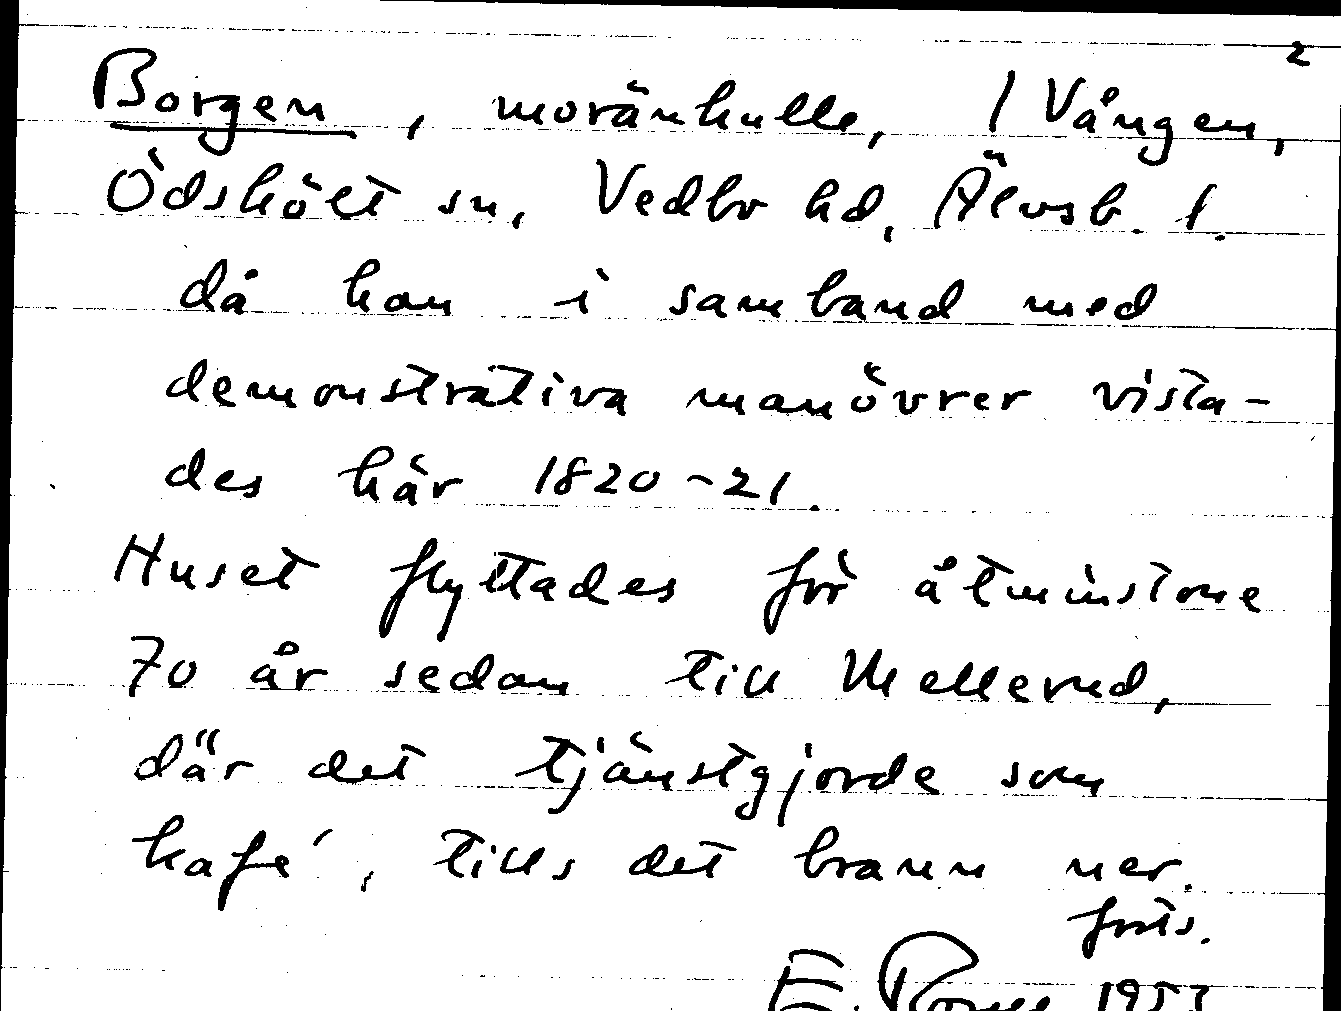 2
Borgen, moränkulle, / Vången,
Ödskölt sn, Vedbo hd, Älvsb. l.
då han i samband med
demonstrativa manövrer vista-
des här 1820-21.
Huset flyttades för åtminstone
70 år sedan till Mellerud,
där det tjänstgjorde som
kafé, tills det brann ner.
forts.
E. 1953